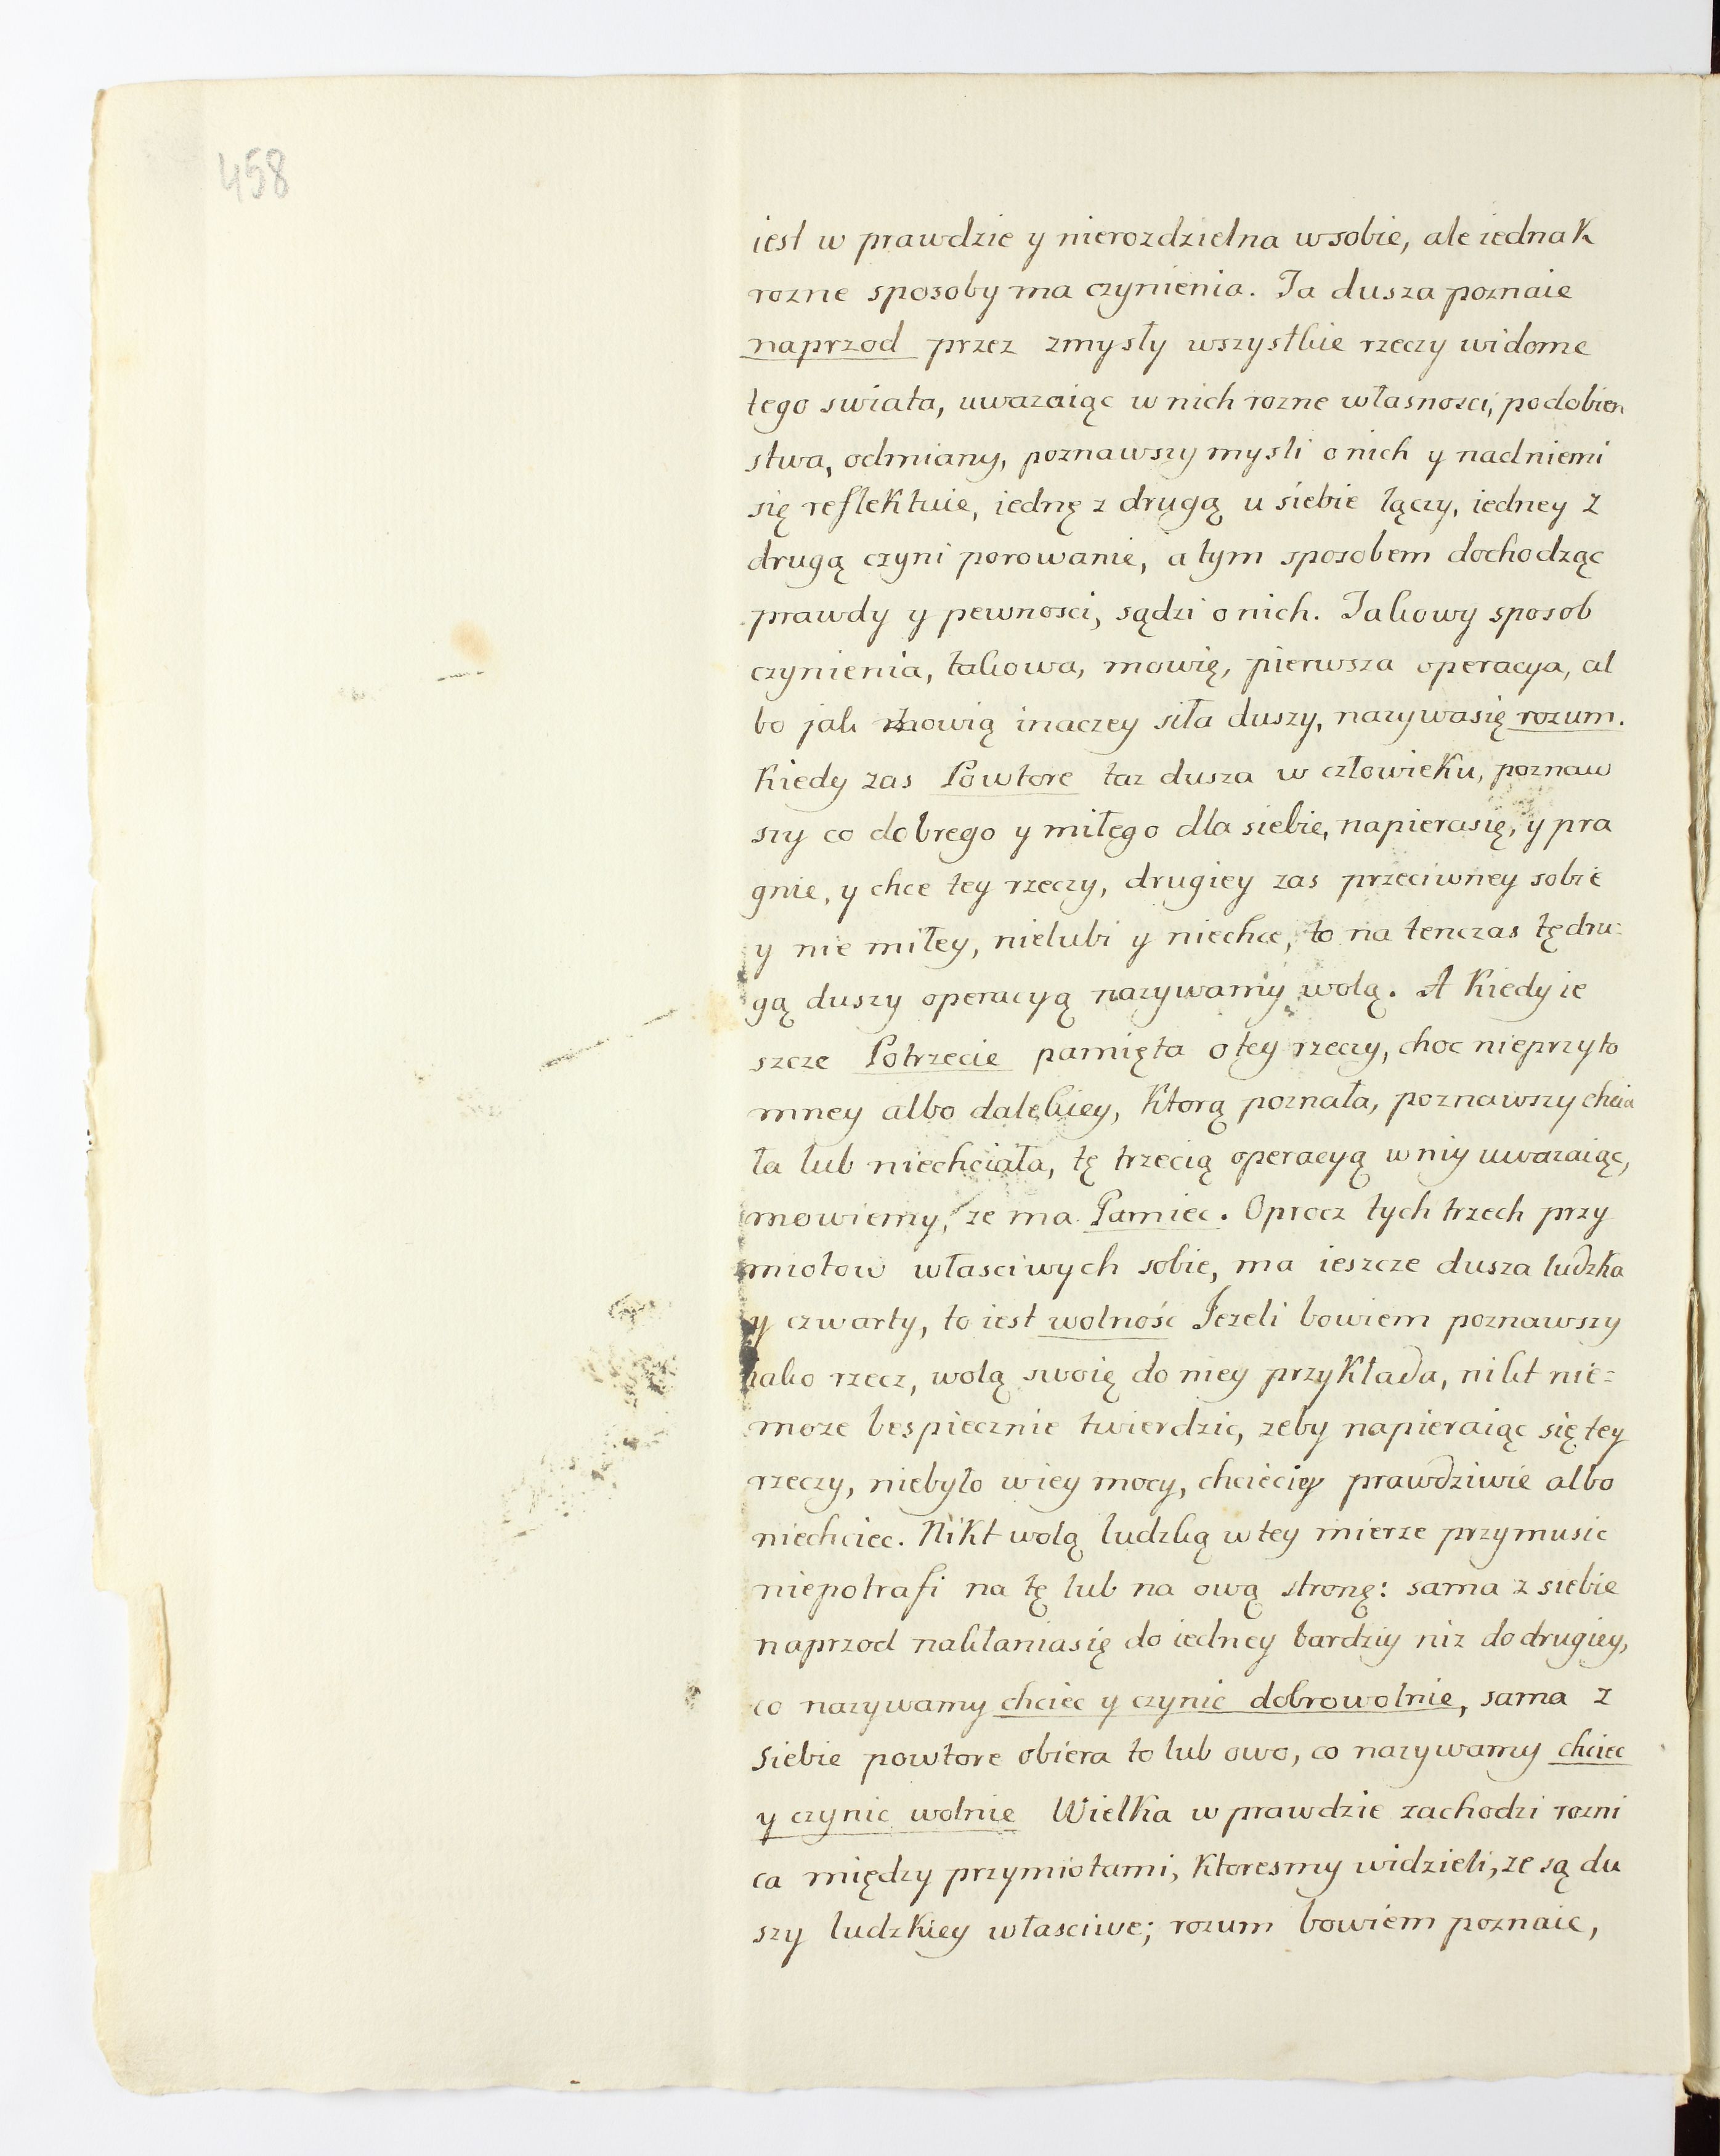 458
iest w prawdzie y nierozdzielna wsobie, ale iednak
rozne sposoby ma czynienia. Ta dusza poznaie
naprzod przez zmysły wszystkie rzeczy widome
tego swiata, uwazaiąc w nich rozne własnosci, podobien
stwa, odmiany, poznawszy mysli o nich y nad niemi
się reflektuie, iednę z drugą u siebie łączy, iedney z
drugą czyni porowanie, a tym sposobem dochodząc
prawdy y pewnosci, sądzi o nich. Takowy sposob
czynienia, takowa, mowię, pierwsza operacya, al
bo jak mowią inaczey siła duszy, nazywasię rozum.
Kiedy zas Powtore taz dusza w człowieku, poznaw
szy co dobrego y miłego dla siebie, napierasię, y pra
gnie, y chce tey rzeczy, drugiey zas przeciwney sobie
y nie miłey, nielubi y niechce, to na tenczas tę dru-
gą duszy operacyą nazywamy wolą. A Kiedy ie
szcze Potrzecie pamięta o tey rzeczy, choc nieprzyto
mney albo dalekiey, Ktorą poznała, poznawszy chcia
ła lub niechciała, tę trzecią operacyą w niy uwazaiąc,
mowiemy, ze ma Pamiec. Oprocz tych trzech przy
miotow własciwych sobie, ma ieszcze dusza ludzka
y czwarty, to iest wolnośc Jezeli bowiem poznawszy
iako rzecz, wolą swoię do niey przykłada, nikt nie=
moze bespiecznie twierdzic, zeby napieraiąc się tey
rzeczy, niebyło w iey mocy, chciec iey prawdziwie albo
niechciec. Nikt wolą ludzką w tey mierze przymusic
niepotrafi na tę lub na ową stronę: sama z siebie
naprzod nakłaniasię do iedney bardziy niz do drugiey,
co nazywamy chciec y czynic dobrowolnie, sama z
siebie powtore obiera to lub owo, co nazywamy chciec
y czynic wolnie Wielka w prawdzie zachodzi rozni
ca między przymiotami, Ktoresmy widzieli, ze są du
szy ludzkiey własciwe; rozum bowiem poznaie,